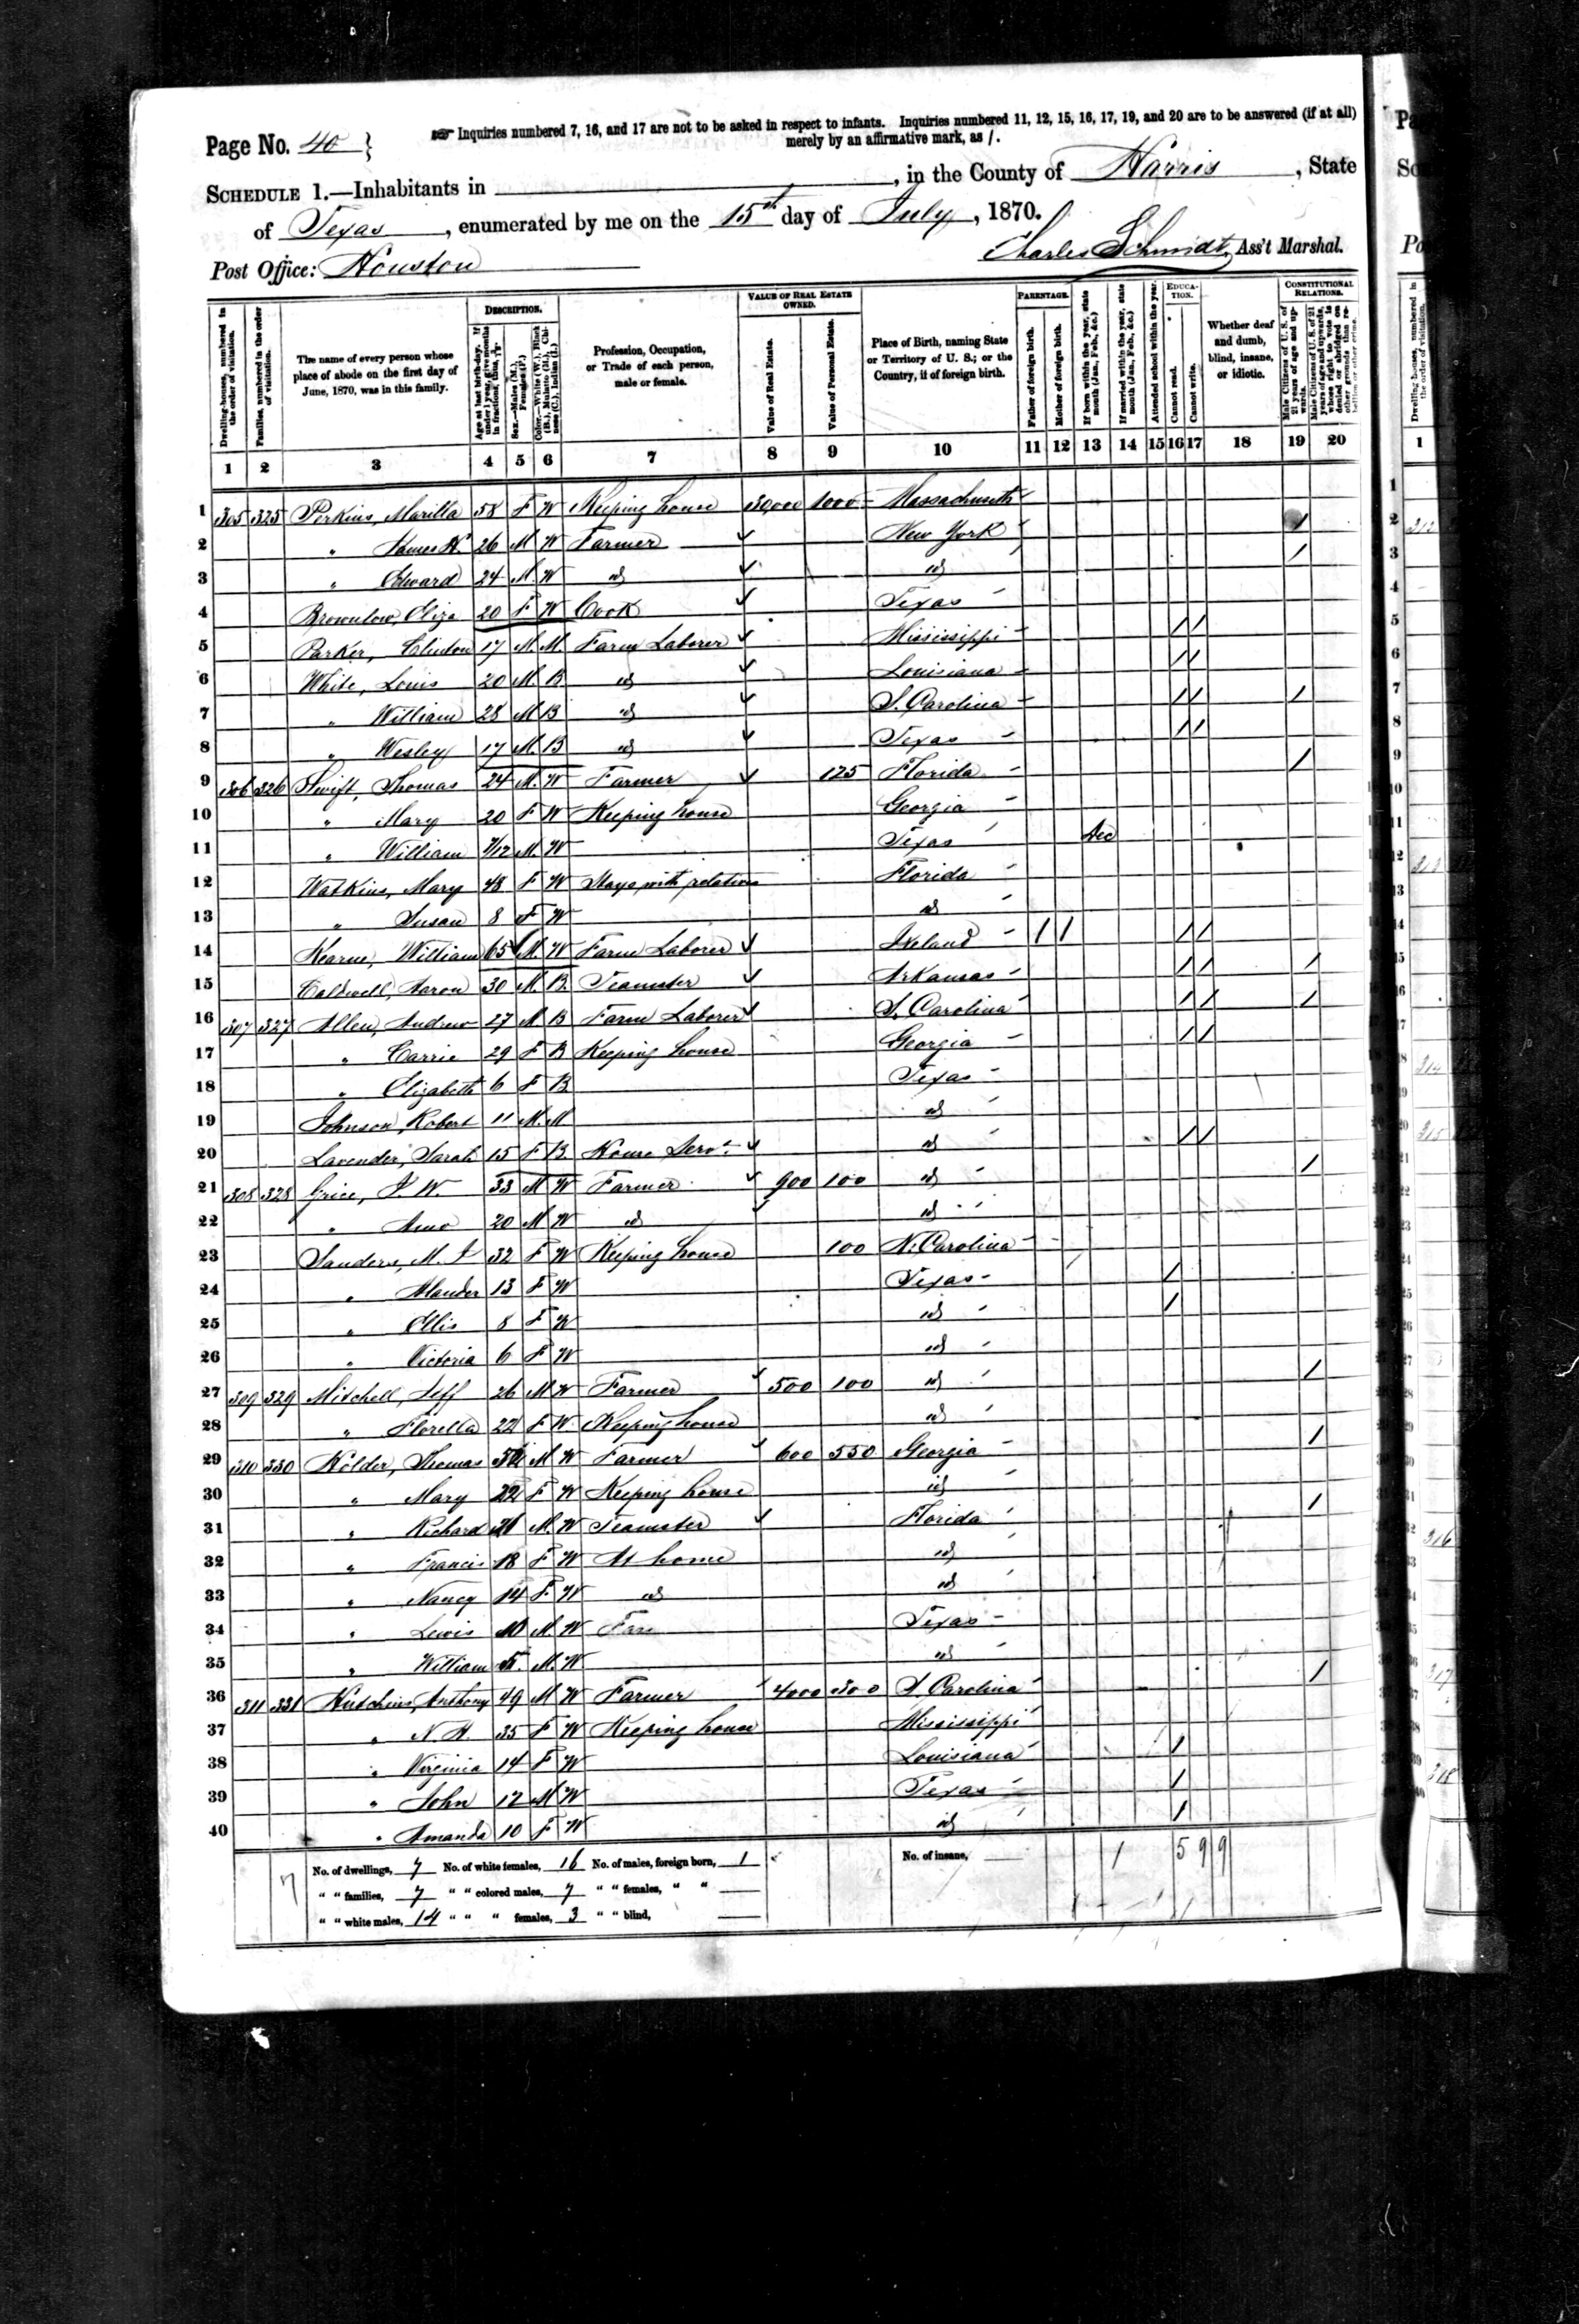 Page No. 40
Inquiries numbered 7, 16, and 17 are not to be asked in respect to infants. Inquiries numbered 11, 12, 15, 16, 17, 19, and 20 are to be answered (if at all)
merely by an affirmative mark, as /.
SCHEDULE 1.—Inhabitants in , in the County of Harris, State
of Texas, enumerated by me on the 15th day of July, 1870.
Post Office: Houston
Charles Schmidt, Ass't Marshal.
Dwelling-houses, numbered in the order of visitation.
Families, numbered in the order of visitation.
The name of every person whose place of abode on the first day of June, 1870, was in this family.
DESCRIPTION.
Sex.—Males (M.), Females (F.)
Color.—White (W.), Black (B.), Mulatto (M.), Chinese (C.), Indian (I.)
Profession, Occupation, or Trade of each person, male or female.
VALUE OF REAL ESTATE OWNED.
Value of Real Estate.
Value of Personal Estate.
Place of Birth, naming State or Territory of U. S.; or the Country, if of foreign birth.
PARENTAGE.
Father of foreign birth.
Mother of foreign birth.
If born within the year, state month (Jan., Feb., &c.)
If married within the year, state month (Jan., Feb., &c.)
Attended school within the year.
EDUCATION.
Cannot read.
Cannot write.
Whether deaf and dumb, blind, insane, or idiotic.
CONSTITUTIONAL RELATIONS.
Male Citizens of U. S. of 21 years of age and upwards.
1 2 3 4 5 6 7 8 9 10 11 12 13 14 15 16 17 18 19 20
1 305 325 Perkins, Marilla 58 F W Keeping house 30,000 1000 Massachusetts
2 " James H 26 M W Farmer New York /
3 " Edward 24 M W id id /
4 Brownlow, Eliza 20 F W Cook Texas
5 Parker, Clinton 17 M M Farm Laborer Mississippi / /
6 White, Louis 20 M B id Louisiana / /
7 " William 28 M B id S. Carolina / / /
8 " Wesley 17 M B id Texas / /
9 306 326 Swift, Thomas 24 M W Farmer 125 Florida /
10 " Mary 20 F W Keeping house Georgia
11 " William 7/12 M W Texas Dec
12 Watkins, Mary 48 F W Stays with relation Florida
13 " Susan 8 F W id
14 Kearns, William 65 M W Farm Laborer Ireland / / / /
15 Caldwell, Aaron 30 M B Teamster Arkansas / / /
16 307 327 Allen, Andrew 27 M B Farm Laborer S. Carolina / / /
17 " Carrie 29 F B Keeping house Georgia / /
18 " Elizabeth 6 F B Texas
19 Johnson, Robert 11 M M id
20 Lavender, Sarah 15 F B House Servt id / /
21 308 328 Grice, J. W. 33 M W Farmer 900 100 id /
22 " Amo 20 M W id id
23 Sanders, M. J 32 F W Keeping house 100 N. Carolina
24 " 13 F W Texas /
25 " Ellis 8 F W id /
26 " Victoria 6 F W id
27 309 329 Mitchell, Jeff 26 M W Farmer 500 100 id /
28 " Florella 22 F W Keeping house id
29 310 330 Holder, Thomas M W Farmer 600 550 Georgia /
30 " Mary F W Keeping house id
31 " Richard 21 M W Teamster Florida /
32 " Francis 18 F W At home id
33 " Nancy 14 F W id id
34 " Lewis 10 M W Texas
35 " William M W id
36 311 331 Hutchins, Anthony 49 M W Farmer 4000 300 S. Carolina /
37 " N. H. 35 F W Keeping house Mississippi
38 " Virginia 14 F W Louisiana /
39 " John 12 M W Texas /
40 " Amanda 10 F W id /
No. of dwellings, 7 No. of white females, 16 No. of males, foreign born, 1 No. of insane, 1 5 9 9
" " families, 7 " " colored males, 7 " " females, " "
" " white males, 14 " " " females, 3 " " blind,